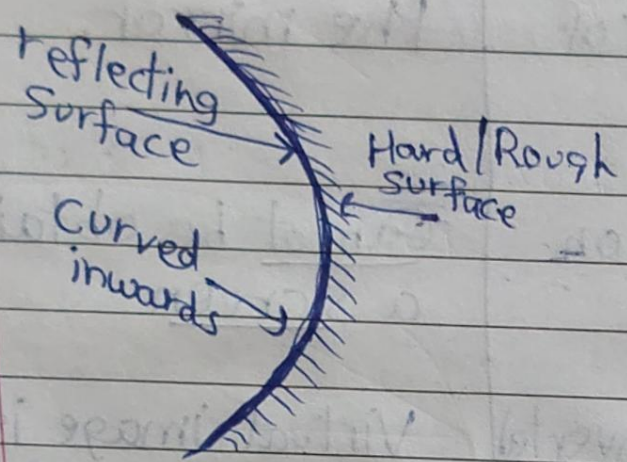 reflecting
Surface
Hard/Rough
surface
Curved
inwards